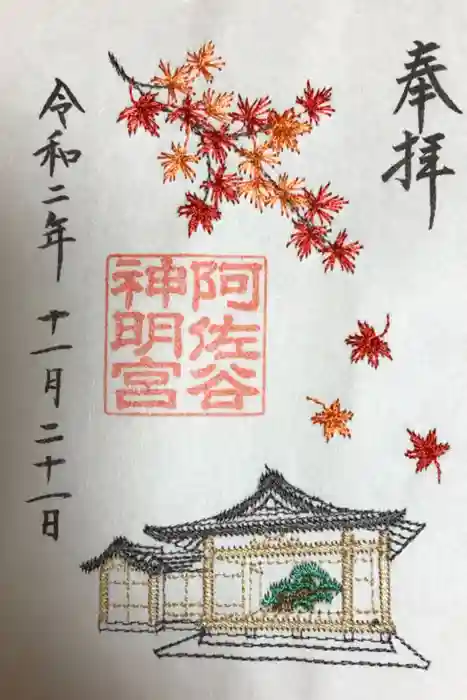 奉拝
阿佐谷
神明宮
令和二年 十一月二十一日